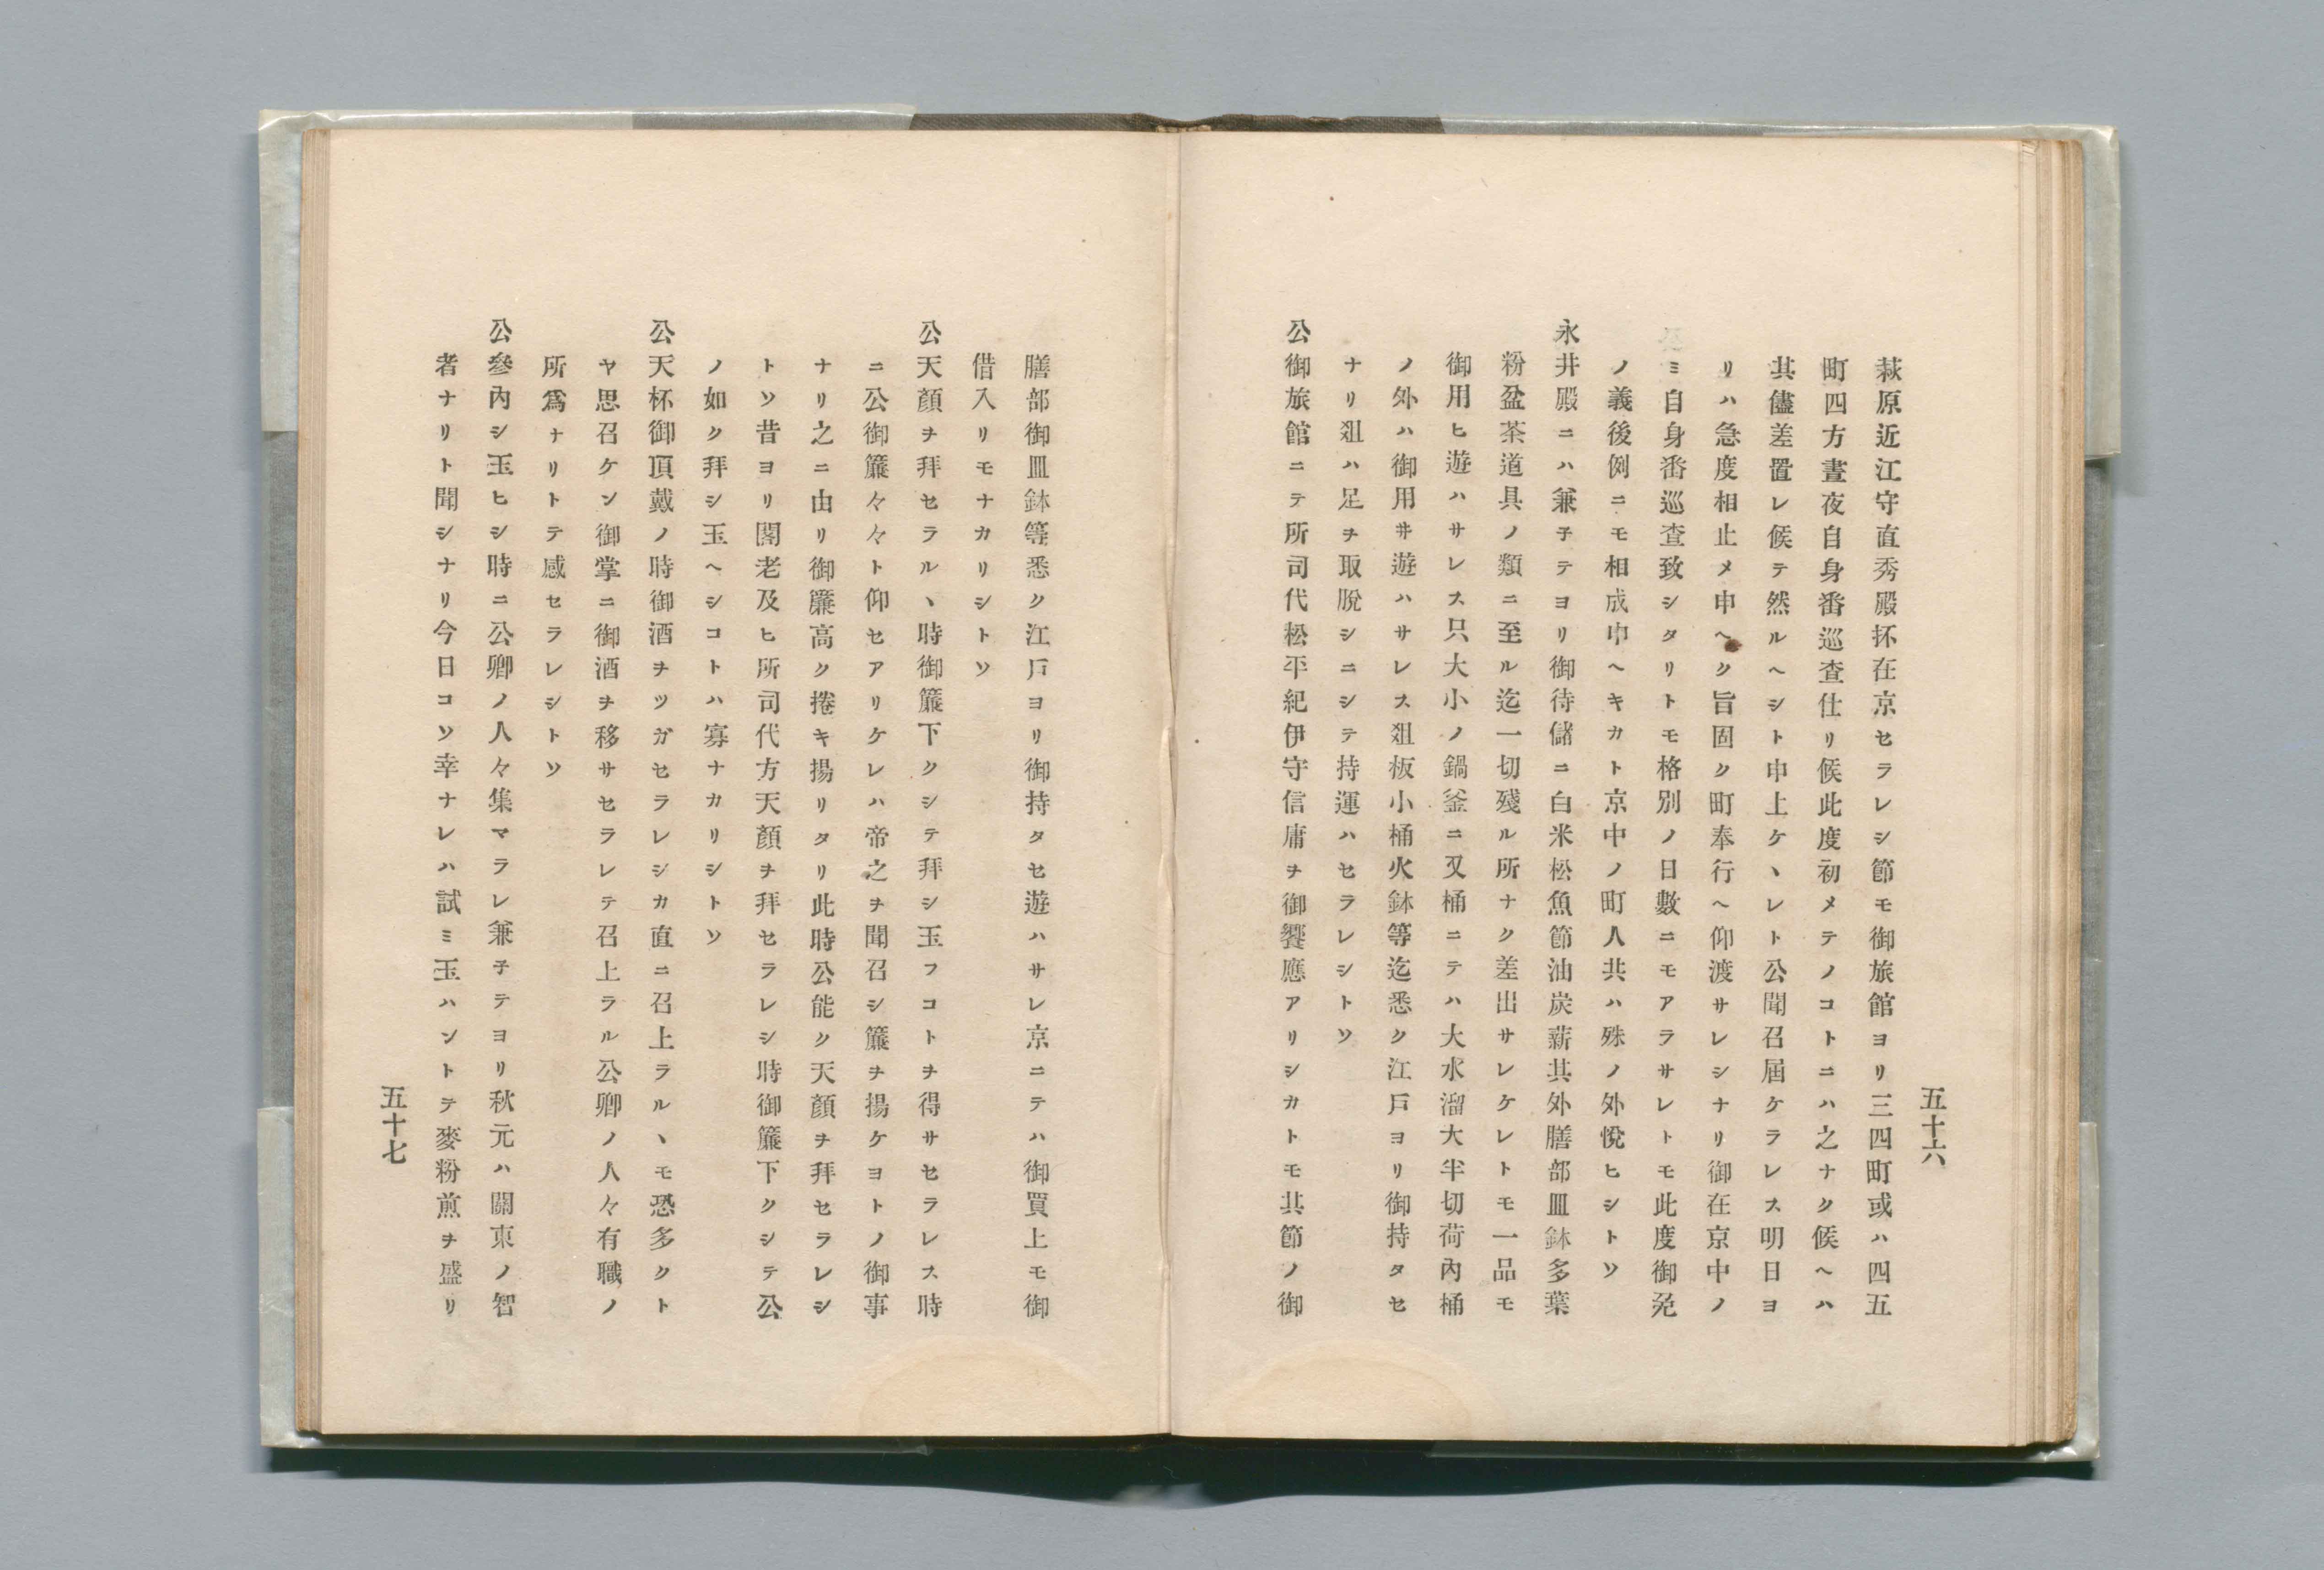 五十六
萩原近江守直秀殿抔在京セラレシ節モ御旅館ヨリ三四町或ハ四五
町四方晝夜自身番巡査仕リ候此度初メテノコトニハ之ナク候ヘハ
其儘差置レ候テ然ルヘシト申上ケヽレト公聞召屆ケラレス明日ヨ
リハ急度相止メ申ヘク旨固ク町奉行ヘ仰渡サレシナリ御在京中ノ
ミ自身番巡査致シタリトモ格別ノ日數ニモアラサレトモ此度御免
ノ義後例ニモ相成申ヘキカト京中ノ町人共ハ殊ノ外悅ヒシトソ
永井殿ニハ兼子テヨリ御待儲ニ白米松魚節油炭薪其外膳部皿鉢多葉
粉盆茶道具ノ類ニ至ル迄一切殘ル所ナク差出サレケレトモ一品モ
御用ヒ遊ハサレス只大小ノ鍋釜ニ又桶ニテハ大水溜大半切荷內桶
ノ外ハ御用井遊ハサレス爼板小桶火鉢等迄悉ク江戶ヨリ御持タセ
ナリ爼ハ足ヲ取脫シニシテ持運ハセラレシトソ
公御旅館ニテ所司代松平紀伊守信庸ヲ御饗應アリシカトモ其節ノ御
膳部御皿鉢等悉ク江戶ヨリ御持タセ遊ハサレ京ニテハ御買上モ御
借入リモナカリシトソ
公天顏ヲ拜セラルヽ時御簾下クシテ拜シ玉フコトヲ得サセラレス時
ニ公御簾々々ト仰セアリケレハ帝之ヲ聞召シ簾ヲ揚ケヨトノ御事
ナリ之ニ由リ御簾高ク捲キ揚リタリ此時公能ク天顏ヲ拜セラレシ
トソ昔ヨリ閣老及ヒ所司代方天顏ヲ拜セラレシ時御簾下クシテ公
ノ如ク拜シ玉ヘシコトハ寡ナカリシトソ
公天杯御頂戴ノ時御酒ヲツガセラレシカ直ニ召上ラルヽモ恐多クト
ヤ思召ケン御掌ニ御酒ヲ移サセラレテ召上ラル公卿ノ人々有職ノ
所爲ナリトテ感セラレシトソ
公參內シ玉ヒシ時ニ公卿ノ人々集マラレ兼子テヨリ秋元ハ關東ノ智
者ナリト聞シナリ今日コソ幸ナレハ試ミ玉ハントテ麥粉煎ヲ盛リ
五十七